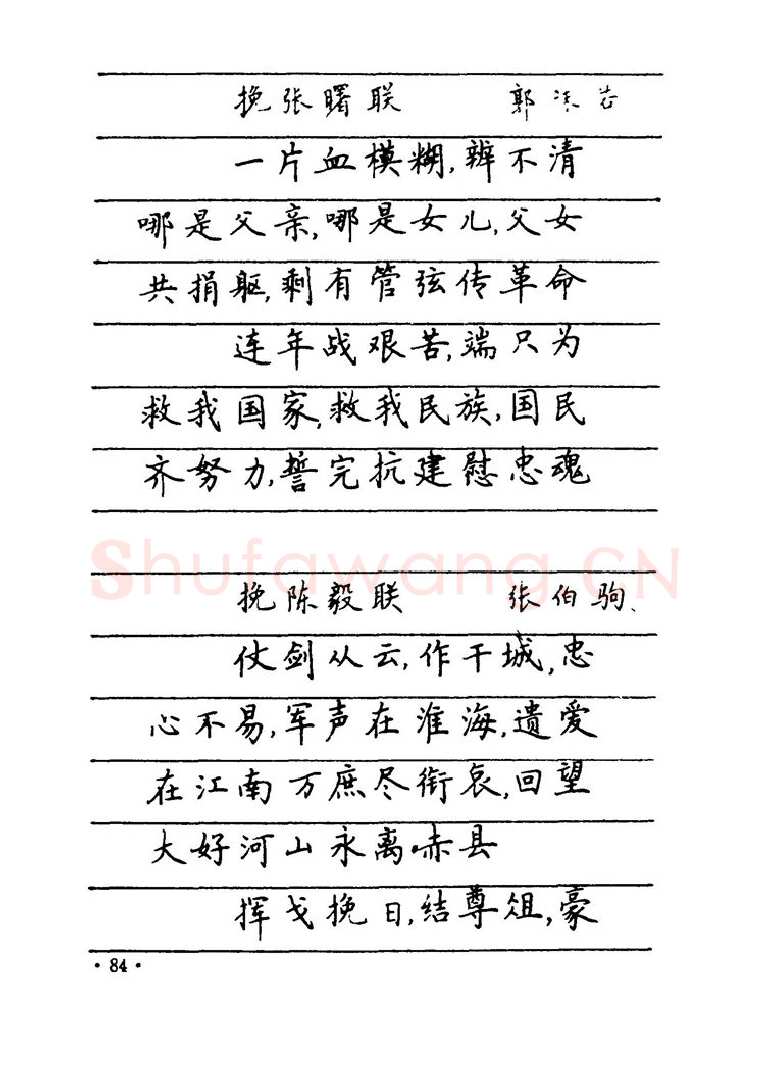 挽张曙联 郭沫若
一片血模糊,辨不清
哪是父亲,哪是女儿,父女
共捐躯,剩有管弦传革命
连年战艰苦,端只为
救我国家,救我民族,国民
齐努力,誓完抗建慰忠魂
Shufawang.CN
挽陈毅联 张伯驹
仗剑从云,作干城,忠
心不易,军声在淮海,遗爱
在江南万庶尽衔哀,回望
大好河山永离赤县
挥戈挽日,结尊俎,豪
·84·